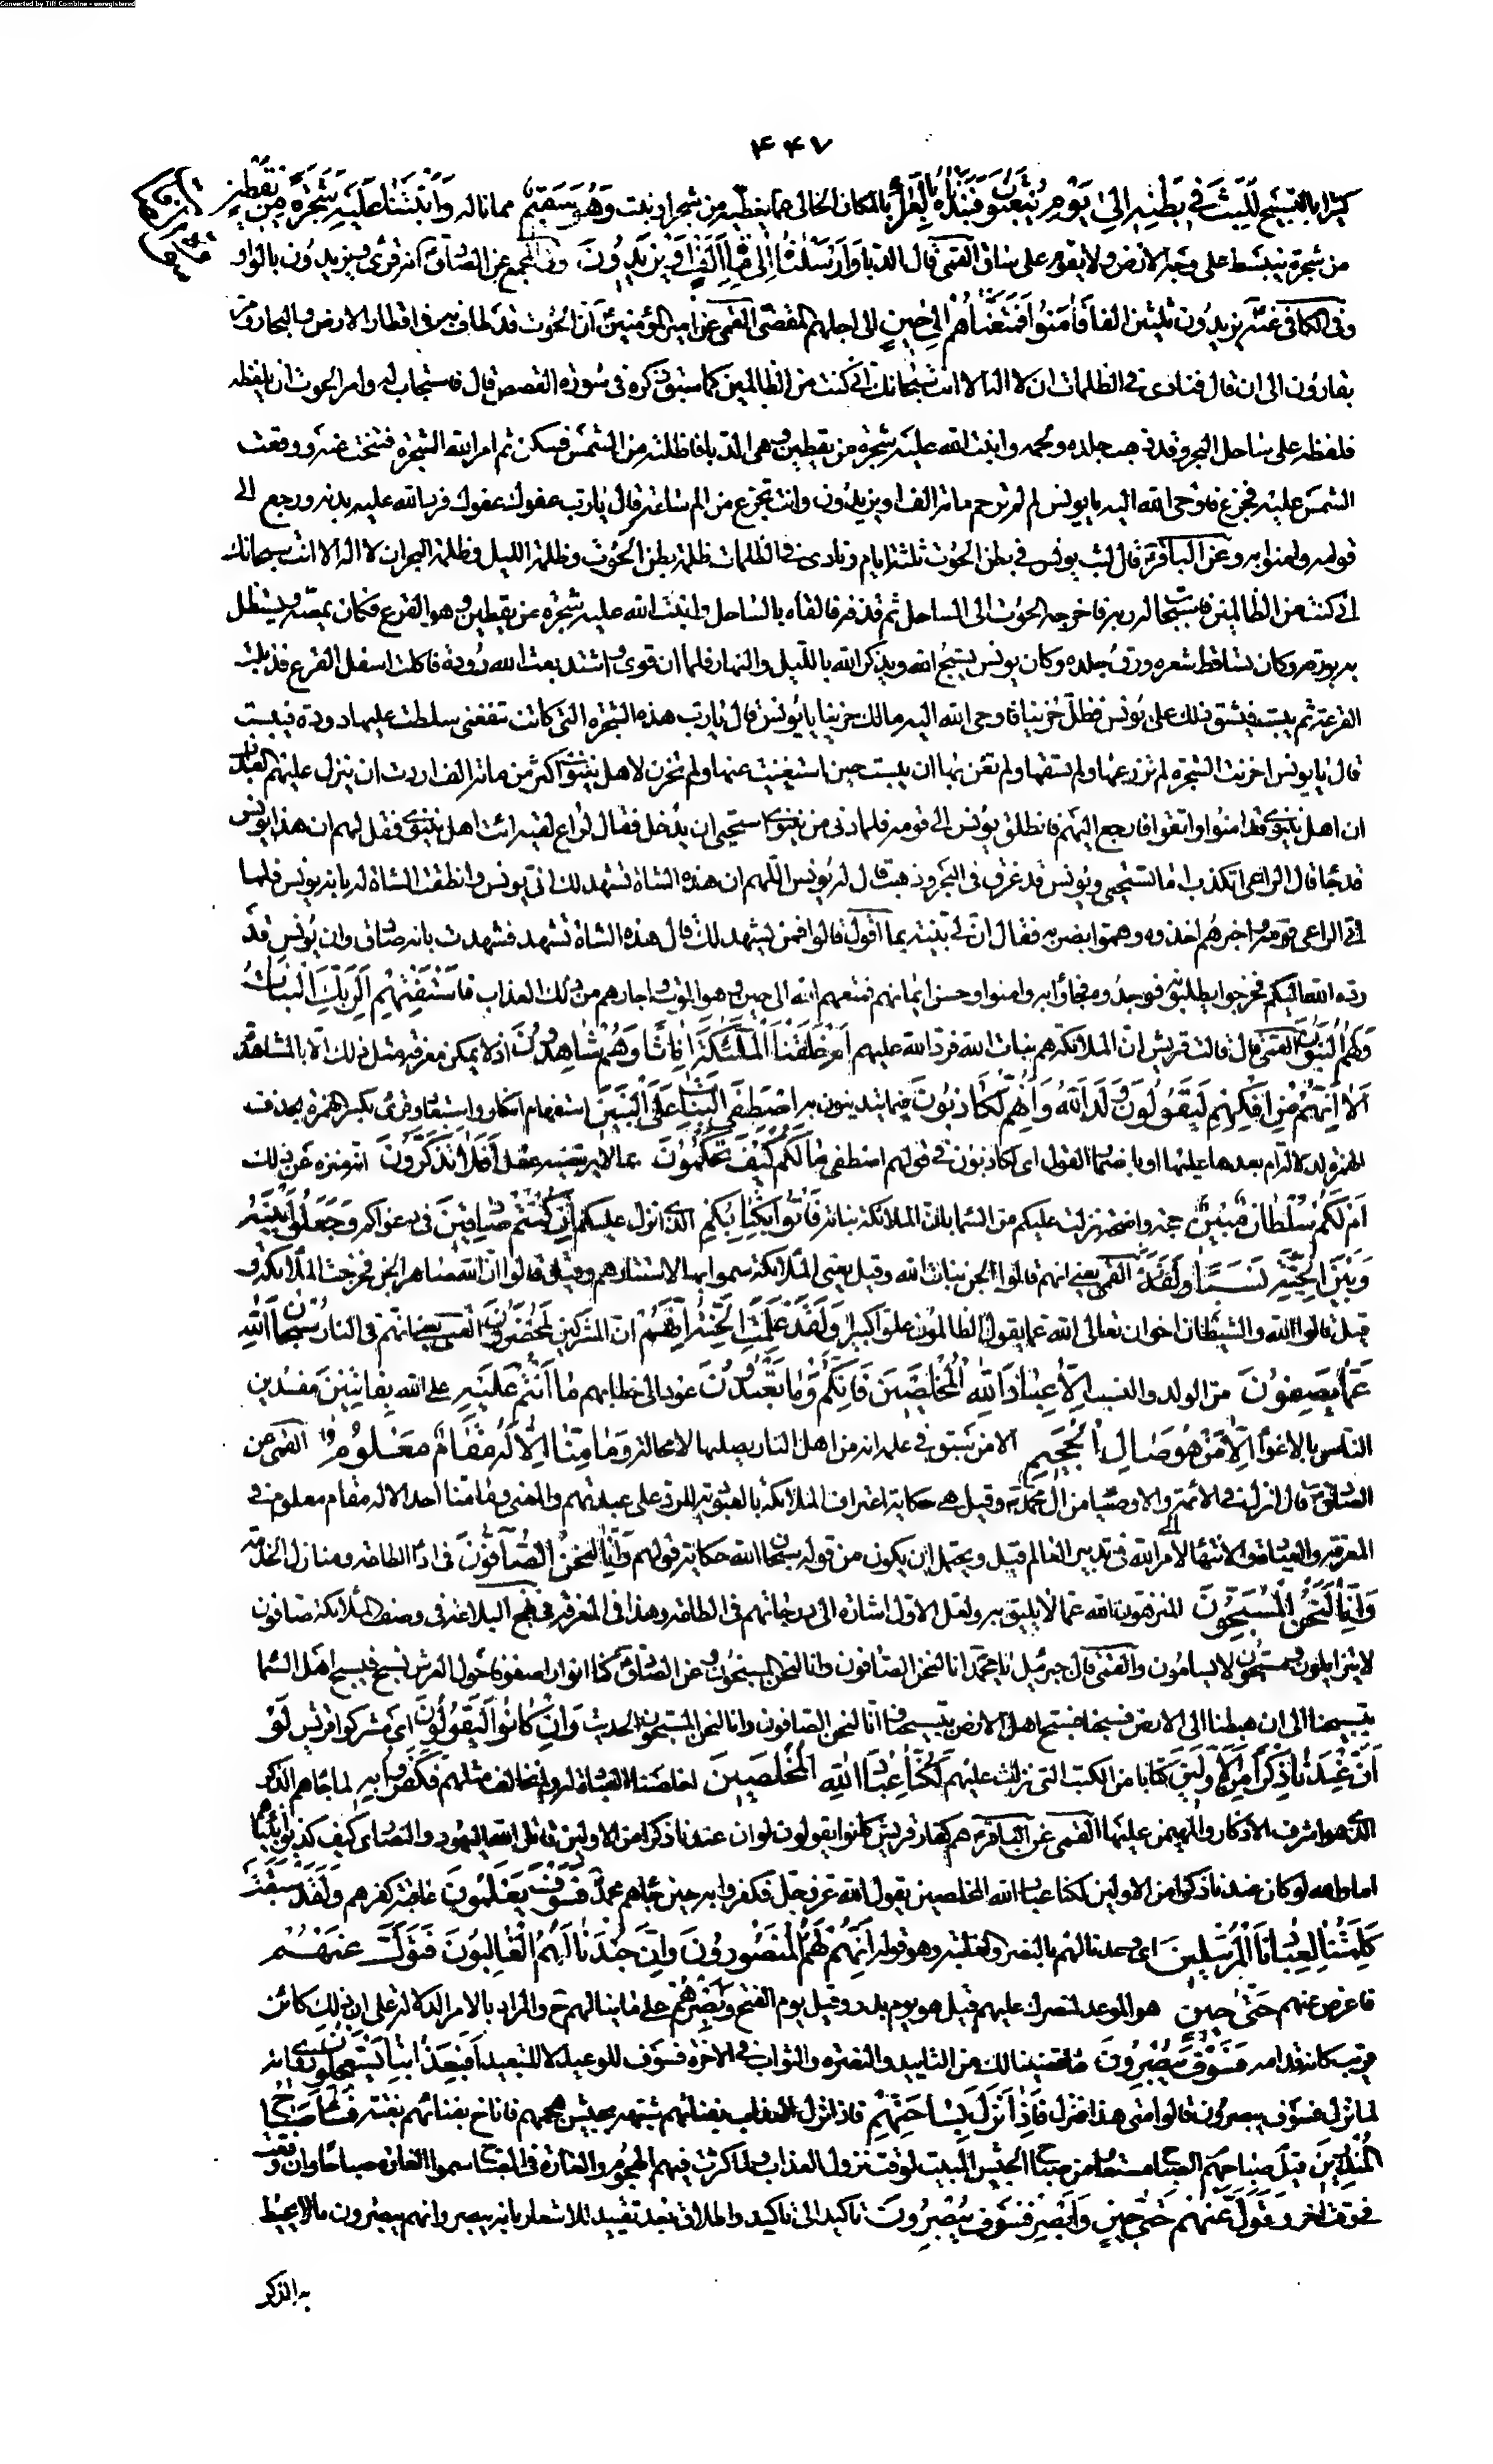 Converted by Tiff Combine - unregistered
۴۴۷
كثيرا بالتسبيح لَلَبِثَ فِي بَطْنِهِ إِلىٰ يَوْمِ يُبْعَثُونَ فَنَبَذْنَاهُ بِالْعَرَاءِ بالمكان الخالي عما يغطيه من شجر او نبت وَهُوَ سَقِيمٌ مما ناله وَأَنْبَتْنَا عَلَيْهِ شَجَرَةً مِنْ يَقْطِينٍ
من شجرة ينبسط على وجه الارض ولا يقوم على ساق القمي قال الدبا وَأَرْسَلْنَاهُ إِلىٰ مِائَةِ أَلْفٍ أَوْ يَزِيدُونَ وفي المجمع عن الصادق انه قرئ ويزيدون بالواو
وفي الكافي عنه يزيدون ثلثين الفا فَآمَنُوا فَمَتَّعْنَاهُمْ إِلىٰ حِينٍ الى اجلهم المقضي القمي عن امير المؤمنين ان الحوت قد طاف به في اقطار الارض والبحار ومر
بقارون الى ان قال فنادى في الظلمات ان لا اله الا انت سبحانك اني كنت من الظالمين كما سبق ذكره في سورة القصص قال فاستجاب له وامر الحوت ان يلفظه
فلفظه على ساحل البحر وقد ذهب جلده ولحمه وانبت الله عليه شجرة من يقطين وهي الدبا فاظلته من الشمس فسكن ثم امر الله الشجرة فتنحت عنه ووقعت
الشمس عليه فجزع فاوحى الله اليه يا يونس لم لم ترحم مائة الف او يزيدون وانت تجزع من الم ساعة قال يا رب عفوك عفوك فرد الله عليه بدنه ورجع الى
قومه وامنوا به وعن الباقر قال لبث يونس في بطن الحوت ثلثة ايام ونادى في الظلمات ظلمة بطن الحوت وظلمة الليل وظلمة البحر ان لا اله الا انت سبحانك
اني كنت من الظالمين فاستجاب له ربه فاخرجه الحوت الى الساحل ثم قذفه فالقاه بالساحل وانبت الله عليه شجرة من يقطين وهو القرع فكان يمصه ويستظل
به بورقه وكان تساقط شعره ورق جلده وكان يونس يسبح الله ويذكر الله بالليل والنهار فلما ان قوى واشتد بعث الله دودة فاكلت اسفل القرع فذبلت
القرعة ثم يبست فشق ذلك على يونس فظل حزينا فاوحى الله اليه مالك حزينا يا يونس قال يا رب هذه الشجرة التي كانت تنفعني سلطت عليها دودة فيبست
قال يا يونس احزنت لشجرة لم تزرعها ولم تسقها ولم تعن بها ان يبست حين استغنيت عنها ولم تحزن لاهل نينوى اكثر من مائة الف اردت ان ينزل عليهم العذاب
ان اهل نينوى قد امنوا واتقوا فارجع اليهم فانطلق يونس الى قومه فلما دنى من نينوى استحيى ان يدخل فقال لراع لقيه ائت اهل نينوى فقل لهم ان هذا يونس
قد جاء قال الراعي اتكذب اما تستحيي ويونس قد غرق في البحر وذهب قال له يونس اللهم ان هذه الشاة تشهد لك اني يونس وانطقت الشاة له بانه يونس فلما
اتى الراعي قومه واخبرهم اخذوه وهموا بضربه فقال ان لي بينة بما اقول قالوا فمن يشهد لك قال هذه الشاة تشهد فشهدت بانه صادق وان يونس قد
رده الله اليكم فخرجوا يطلبونه فوجدوه فجاؤا به وامنوا وحسن ايمانهم فمتعهم الله الى حين وهو الموت واجارهم من ذلك العذاب فَاسْتَفْتِهِمْ أَلِرَبِّكَ الْبَنَاتُ
وَلَهُمُ الْبَنُونَ القمي قال قالت قريش ان الملائكة هم بنات الله فرد الله عليهم أَمْ خَلَقْنَا الْمَلٰئِكَةَ إِنَاثًا وَهُمْ شَاهِدُونَ اذ لا يمكن معرفة مثل ذلك الا بالمشاهدة
أَلَا إِنَّهُمْ مِنْ إِفْكِهِمْ لَيَقُولُونَ وَلَدَ اللّٰهُ وَإِنَّهُمْ لَكَاذِبُونَ فيما يتدينون به أَصْطَفَى الْبَنَاتِ عَلَى الْبَنِينَ استفهام انكار واستبعاد وقرئ بكسر الهمزة بحذف
الهمزة لدلالة ام بعدها عليها او باضمار القول اى لكاذبون في قولهم اصطفى مَا لَكُمْ كَيْفَ تَحْكُمُونَ بما لا يرتضيه عقل أَفَلَا تَذَكَّرُونَ انه منزه عن ذلك
أَمْ لَكُمْ سُلْطَانٌ مُبِينٌ حجة واضحة نزلت عليكم من السماء بان الملائكة بناته فَأْتُوا بِكِتَابِكُمْ الذي انزل عليكم إِنْ كُنْتُمْ صَادِقِينَ في دعواكم وَجَعَلُوا بَيْنَهُ
وَبَيْنَ الْجِنَّةِ نَسَبًا القمي يعني انهم قالوا الجن بنات الله وقيل يعني الملائكة سموا بها لاستتارهم وقيل قالوا ان الله صاهر الجن فخرجت الملائكة و
قيل قالوا الله والشيطان اخوان تعالى الله عما يقول الظالمون علوا كبيرا وَلَقَدْ عَلِمَتِ الْجِنَّةُ إِنَّهُمْ ان المشركين لَمُحْضَرُونَ القمي يعني انهم في النار سُبْحَانَ اللّٰهِ
عَمَّا يَصِفُونَ من الولد والنسب إِلَّا عِبَادَ اللّٰهِ الْمُخْلَصِينَ فَإِنَّكُمْ وَمَا تَعْبُدُونَ عود الى خطابهم مَا أَنْتُمْ عَلَيْهِ على الله بِفَاتِنِينَ مفسدين
الناس بالاغواء إِلَّا مَنْ هُوَ صَالِ الْجَحِيمِ الا من سبق في علمه انه من اهل النار يصليها لا محالة وَمَا مِنَّا إِلَّا لَهُ مَقَامٌ مَعْلُومٌ القمي عن
الصادق قال نزلت في الائمة والاوصياء من ال محمد وقيل هي حكاية اعتراف الملائكة بالعبودية للرد على عبدتهم والمعنى وما منا احد الا له مقام معلوم في
المعرفة والعبادة والانتهاء الى امر الله في تدبير العالم قيل ويحتمل ان يكون من قوله سبحان الله حكاية قولهم وَإِنَّا لَنَحْنُ الصَّافُّونَ في اداء الطاعة ومنازل الخدمة
وَإِنَّا لَنَحْنُ الْمُسَبِّحُونَ المنزهون الله عما لا يليق به ولعل الاول اشارة الى درجاتهم في الطاعة وهذا في المعرفة في نهج البلاغة في وصف الملائكة صافون
لا يتزايلون ومسبحون لا يسامون والقمي قال جبرئيل يا محمد انا لنحن الصافون وانا لنحن المسبحون وعن الصادق كنا انوارا صفوفا حول العرش نسبح فيسبح اهل السماء
بتسبيحنا الى ان هبطنا الى الارض فسبحنا فسبح اهل الارض بتسبيحنا وانا لنحن الصافون وانا لنحن المسبحون الحديث وَإِنْ كَانُوا لَيَقُولُونَ اى مشركوا قريش لَوْ
أَنَّ عِنْدَنَا ذِكْرًا مِنَ الْأَوَّلِينَ كتابا من الكتب التي نزلت عليهم لَكُنَّا عِبَادَ اللّٰهِ الْمُخْلَصِينَ لاخلصنا العبادة له ولم نخالف مثلهم فَكَفَرُوا بِهِ لما جاءهم الذكر
الذي هو اشرف الاذكار والمهيمن عليها القمي عن الباقر هم كفار قريش كانوا يقولون لو ان عندنا ذكرا من الاولين قاتل الله اليهود والنصارى كيف كذبوا انبياءهم
اما والله لو كان عندنا ذكرا من الاولين لكنا عباد الله المخلصين يقول الله عز وجل فكفروا به حين جاءهم محمد فَسَوْفَ يَعْلَمُونَ عاقبة كفرهم وَلَقَدْ سَبَقَتْ
كَلِمَتُنَا لِعِبَادِنَا الْمُرْسَلِينَ اى وعدنا لهم بالنصر والغلبة وهو قوله إِنَّهُمْ لَهُمُ الْمَنْصُورُونَ وَإِنَّ جُنْدَنَا لَهُمُ الْغَالِبُونَ فَتَوَلَّ عَنْهُمْ
فاعرض عنهم حَتّٰى حِينٍ هو الموعد لنصرك عليهم قيل هو يوم بدر وقيل يوم الفتح وَأَبْصِرْهُمْ على ما ينالهم ح والمراد بالامر الدلالة على ان ذلك كائن
قريب كانه قدامه فَسَوْفَ يُبْصِرُونَ ما قضينا لك من التاييد والنصرة والثواب في الاخرة فسوف للوعيد لا للتبعيد أَفَبِعَذَابِنَا يَسْتَعْجِلُونَ
لما نزل فسوف يبصرون قالوا متى هذا فنزل فَإِذَا نَزَلَ بِسَاحَتِهِمْ فاذا نزل العذاب بفنائهم شبهه بجيش هجمهم فاناخ بفنائهم بغتة فَسَاءَ صَبَاحُ
الْمُنْذَرِينَ قيل صباحهم الصباح مستعار من صباح الجيش المبيت لوقت نزول العذاب ولما كثرت فيهم الهجوم والغارة في الصباح سموا الغارة صباحا وان وقعت
في وقت اخر وَتَوَلَّ عَنْهُمْ حَتّٰى حِينٍ وَأَبْصِرْ فَسَوْفَ يُبْصِرُونَ تاكيد الى تاكيد واطلاق بعد تقييد للاشعار بانه يبصر وانهم يبصرون ما لا يحيط
به الذكر